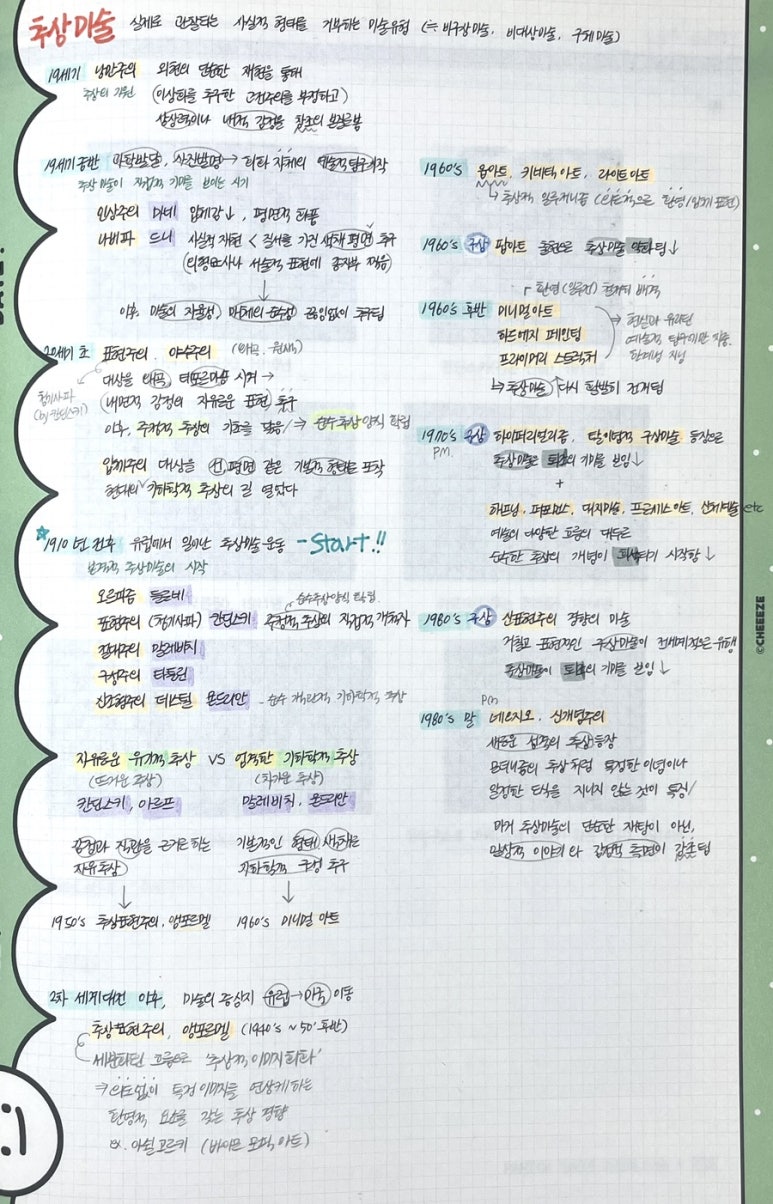 추상미술 실제로 관찰되는 사실적 형태를 거부하는 미술유형 (≒ 비구상미술, 비대상미술, 구체미술)
19세기 낭만주의 외현의 단순한 재현을 통해
추상의 기원 (이상화를 추구한 고전주의를 부정하고)
상상력이나 내적 감정을 창조의 본질로 봄
19세기 중반 과학발달, 사진발명 → 회화 자체의 예술적 탐구 시작
추상미술이 직접적 기미를 보이는 시기
인상주의 마네 입체감↓, 평면적 화풍
나비파 드니 사실적 재현 < 질서를 가진 색채 평면 추구
(원형묘사나 서술적 표현에 종지부 찍음)
이후 미술의 자율성, 매체의 순수성 끊임없이 추구됨
20세기 초 표현주의, 야수주의
대상을 왜곡, 데포르마숑 시켜 →
청기사파
(by 칸딘스키)
(내면적 감정의 자유로운 표현) 추구
이후, 주정적 추상의 기초를 닦음/ ⇒ 순수추상양식 확립
입체주의 대상을 선, 평면 같은 기본적 형태로 포착
현대의 기하학적 추상의 길 열었다
☆1910년 전후 유럽에서 일어난 추상미술운동 - Start!!
본격적 추상미술의 시작
오르피즘 들로네
순수추상양식 확립
표현주의 (청기사파) 칸딘스키 주정적 추상의 직접적 개척자
절대주의 말레비치
구성주의 타틀린
신조형주의 데스틸 몬드리안 - 순수 객관적 기하학적 추상
자유로운 유기적 추상 VS 엄격한 기하학적 추상
(뜨거운 추상) (차가운 추상)
칸딘스키, 아르프 말레비치, 몬드리안
감정과 직관을 근거로 하는 기본적인 형태, 색채로
자유추상 기하학적 구성 추구
↓ ↓
1950's 추상표현주의, 앵포르멜 1960's 미니멀 아트
2차 세계대전 이후, 미술의 중심지 유럽 → 미국 이동
추상표현주의, 앵포르멜 (1940's ~ 50' 후반)
세분화된 흐름으로 '추상적 이미지 회화'
⇒ 의도없이 특정 이미지를 연상케하는
환영적 요소를 갖는 추상 경향
ex. 아쉴 고르키 (바이오 모픽 아트)
1960's 옵아트, 키네틱 아트, 라이트 아트
↳ 추상적 일루저니즘 (의도적으로 환영/입체 표현)
1960's 구상 팝아트 출현으로 추상미술 약화됨↓
환영 (일루전) 철저히 배격
1960's 후반 미니멀아트
하드에지 페인팅
프라이머리 스트럭처
→ 현실과 유리된
예술적 탐구에만 치중.
한계성 지님
↳ 추상미술 다시 활발히 전개됨
1970's 구상 하이퍼리얼리즘, 탈이념적 구상미술 등장으로
P.M. 추상미술 퇴조의 기미를 보임↓
+
해프닝, 퍼포먼스, 대지미술, 프로세스 아트, 신체예술 etc
예술의 다양한 흐름의 대두로
순수한 추상의 개념이 퇴색되기 시작함↓
1980's 구상 신표현주의 경향의 미술
거칠고 표현적인 구상미술이 전세계적으로 유행
추상미술이 퇴조의 기미를 보임↓
P.M
1980's 말 네오지오, 신개념주의
새로운 성격의 추상 등장
모더니즘의 추상처럼 특정한 이념이나
일정한 도식을 지니지 않는 것이 특징/
과거 추상미술의 단순한 재탕이 아닌,
일상적 이야기와 감정적 측면이 강조됨
©CHEEEZE